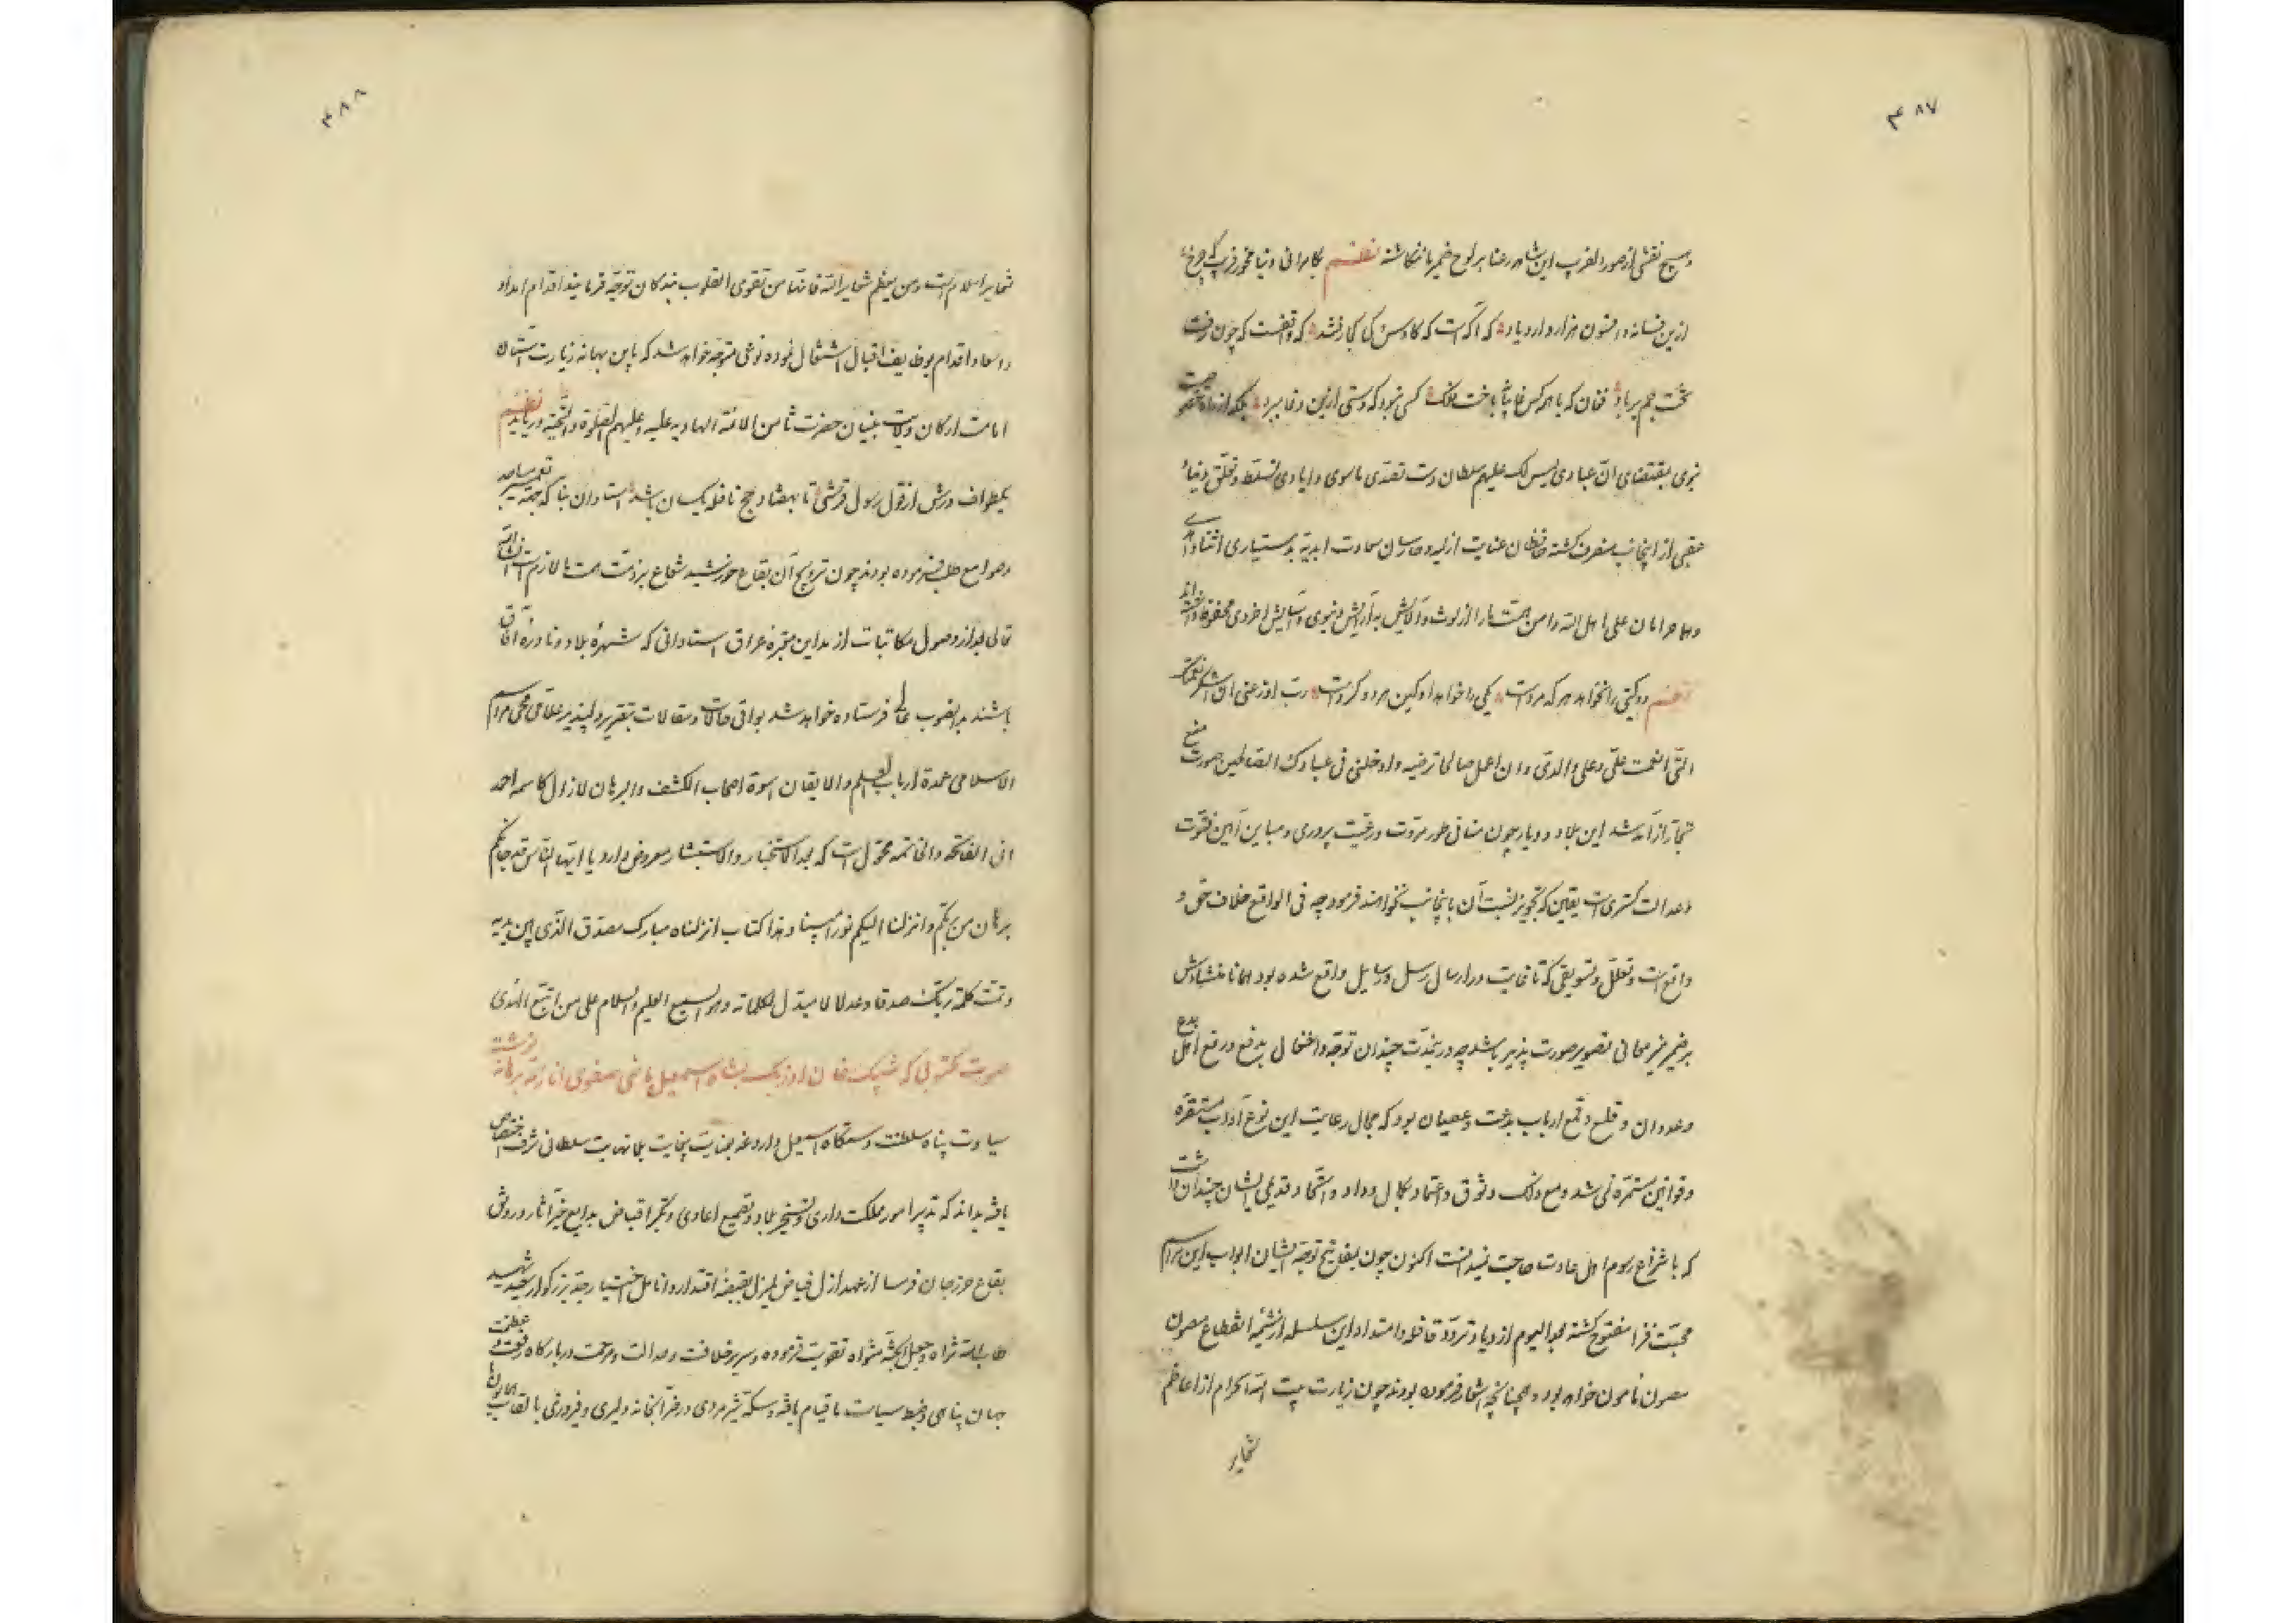 ۴۸۷
و هیچ نقشی از صور دلفریب این شاهد رعنا بر لوح ضمیر ما ننگاشته نظم بکامرانی دنیا مخور فریب که چرخ
ازین فسانه و افسون هزار دارد یاد که آگهست که کاوس کی کجا شد که واقفست که چون رفت
تخت جم بر باد فغان که با همه کس غایبانه باخت فلک کسی نبود که دستی ازین دغا ببرد بلکه از
نبوی بمقتضای ان عبادی لیس لک علیهم سلطان دست تعدی ماسوی و ایادی تسلط و تعلق دنیا
عقبی از اینجانب منصرف گشته حافظان عنایت ازلیه و حارسان سعادت ابدیه بدستیاری
و هما حرامان علی اهل الله دامن همت ما را از لوث و آلایش به آرایش دنیوی و آسایش اخروی محفوظ داشته‌اند
نظم دو گیتی را نخواهد هر که مردست یکی را خواهد او کین هر دو گردست رب اوزعنی ان اشکر نعمتک
التی انعمت علی و علی والدی و ان اعمل صالحا ترضیه و ادخلنی فی عبادک الصالحین صورت منع
تجار از آمد شد این بلاد و دیار چون منافی طور مروت و رعیت پروری و مباین آیین فتوت
و عدالت گستری است یقین که تجویز نسبت آن باینجانب نخواهند فرمود چه فی الواقع خلاف حق و
واقع است و تعلل و تسویقی که تا غایت در ارسال رسل و رسایل واقع شده بود همانا منشاءش
بر ضمیر منیر معانی تصویر صورت پذیر باشد چه درین مدت چندان توجه و اشتغال بدفع و رفع اهل بدع
و عدوان و قلع و قمع ارباب بدعت و عصیان بود که مجال رعایت این نوع آداب مستقره
و قوانین مستمره نمی شد و مع ذلک وثوق و اعتماد بکمال وداد و اتحاد قدیمی ایشان چندان داشت
که با شراع رسوم اهل عادت حاجت نمیدانست اکنون چون بمفاتیح توجه ایشان ابواب این مراسم
محبت فزا مفتوح گشته بعد الیوم ازدیاد تردد قافله و امتداد این سلسله از شیمه انقطاع مصون
مصون و مامون خواهد بود و همچنانچه اشعار فرموده بودند چون زیارت بیت الله الحرام از اعاظم
شعایر
۴۸۸
شعایر اسلام است و من یعظم شعایر الله فانها من تقوی القلوب بندگان توجه فرمایند اقدام امداد
و اسعاد و اقدام بوظایف اقبال اشتغال نموده نوعی متوجه خواهد شد که باین بهانه زیارت آستان
امامت ارکان ولایت بنیان حضرت ثامن الائمه الهادیه علیه و علیهم الصلوة و التحیه دریابد نظم
یک طواف درش از قول رسول قرشی تا بهفتاد حج نافله یکسان باشد استادان بنا که جهة تعمیر مساجد
و صوامع طلب فرموده بودند چون ترویج آن بقاع خورشید شعاع بر ذمت همت ما لازمست ان شاء الله
تعالی بعد از وصول مکاتبات از مداین عراق استادانی که شهره بلاد و نادره آفاق
باشند بدانصوب عالی فرستاده خواهد شد بواقی حالات و مقالات بتقریر دلپذیر علامی محی مراسم
الاسلامی عمدة ارباب العلم و الایقان اسوة اصحاب الکشف و البرهان لازال کاسمه احمد
فی الفاتحه و الخاتمه محول است که بعد الاستخبار و الاستبشار معروض دارد یا ایها الناس قد جاءکم
برهان من ربکم و انزلنا الیکم نورا مبینا و هذا کتاب انزلناه مبارک مصدق الذی بین یدیه
و تمت کلمة ربک صدقا و عدلا لا مبدل لکلماته و هو السمیع العلیم و السلام علی من اتبع الهدی
صورت مکتوبی که شیبک خان اوزبک بشاه اسمعیل ماضی صفوی انار الله برهانه نوشته
سیادت پناه سلطنت دستگاه اسمعیل داروغه بعنایت بی غایت بلا نهایت سلطانی شرف اختصاص
یافته بداند که تدبیر امور مملکت داری و تسخیر بلاد و تقمیع اعادی
بقاع از عهد ازل فیاض لم یزل بقبضه اقتدار و انامل اختیار جد بزرگوار سعید شهید
طاب الله ثراه و جعل الجنة مثواه تفویت فرموده و سریر خلافت و عدالت و مرحمت در بارگاه رفعت و عظمت
جهان پناهی و ضبط سیاست ما قیام یافته و سکه شیر مردی در ضرابخانه دلیری و فیروزی بالقاب همایون ما